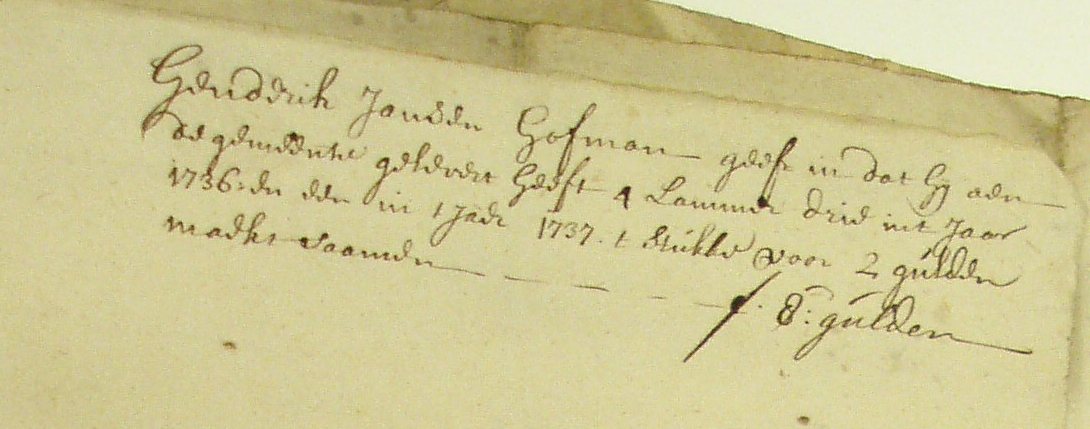 Henderik Jansen Hofman geeft in dat hij aen
de gemeente gelevert heeft 4 Lammer drie int Jaar
1736: en een in t Jaer 1737. t stukke voor 2 gulden
maekt saamen — — — — — f. 8: gulden